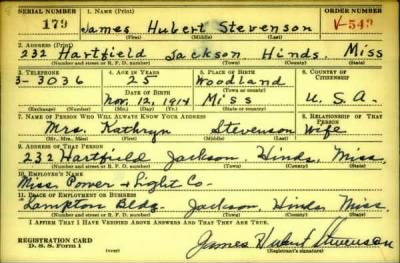 SERIAL NUMBER 1. NAME (Print) ORDER NUMBER
179 James Hubert Stevenson V-549
(First) (Middle) (Last)
2. ADDRESS (Print)
232 Hartfield Jackson Hinds, Miss
(Number and street or R. F. D. number) (Town) (County) (State)
3. TELEPHONE 4. AGE IN YEARS 5. PLACE OF BIRTH 6. COUNTRY OF CITIZENSHIP
3-3036 25 Woodland
DATE OF BIRTH (Town or county)
Nov. 12, 1914 Miss U. S. A.
(Exchange) (Number) (Mo.) (Day) (Yr.) (State or country)
7. NAME OF PERSON WHO WILL ALWAYS KNOW YOUR ADDRESS 8. RELATIONSHIP OF THAT PERSON
Mrs. Kathryn Stevenson Wife
(Mr., Mrs., Miss) (First) (Middle) (Last)
9. ADDRESS OF THAT PERSON
232 Hartfield Jackson, Hinds, Miss.
(Number and street or R. F. D. number) (Town) (County) (State)
10. EMPLOYER'S NAME
Miss. Power & Light Co.
11. PLACE OF EMPLOYMENT OR BUSINESS
Lampton Bldg. Jackson, Hinds, Miss.
(Number and street or R. F. D. number) (Town) (County) (State)
I AFFIRM THAT I HAVE VERIFIED ABOVE ANSWERS AND THAT THEY ARE TRUE.
REGISTRATION CARD
D. S. S. Form 1
James Hubert Stevenson
(Registrant's signature)